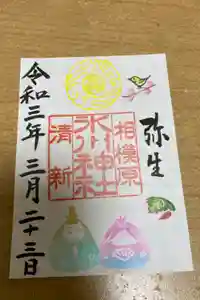 弥生
相模原
氷川神社
清新
令和三年三月二十三日